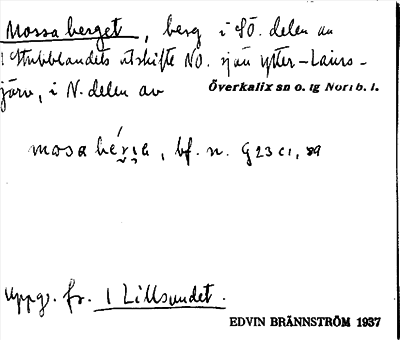 Mossaberget, berg i SÖ. delen av
1 Stubblandets utskifte NO. sjön Ytter-Lans-
järv, i N. delen av Överkalix sn o. tg Norrb. l.
mosabéria, bf. n. G23c1, 89
Uppg. fr. 1 Lillsundet.
EDVIN BRÄNNSTRÖM 1937